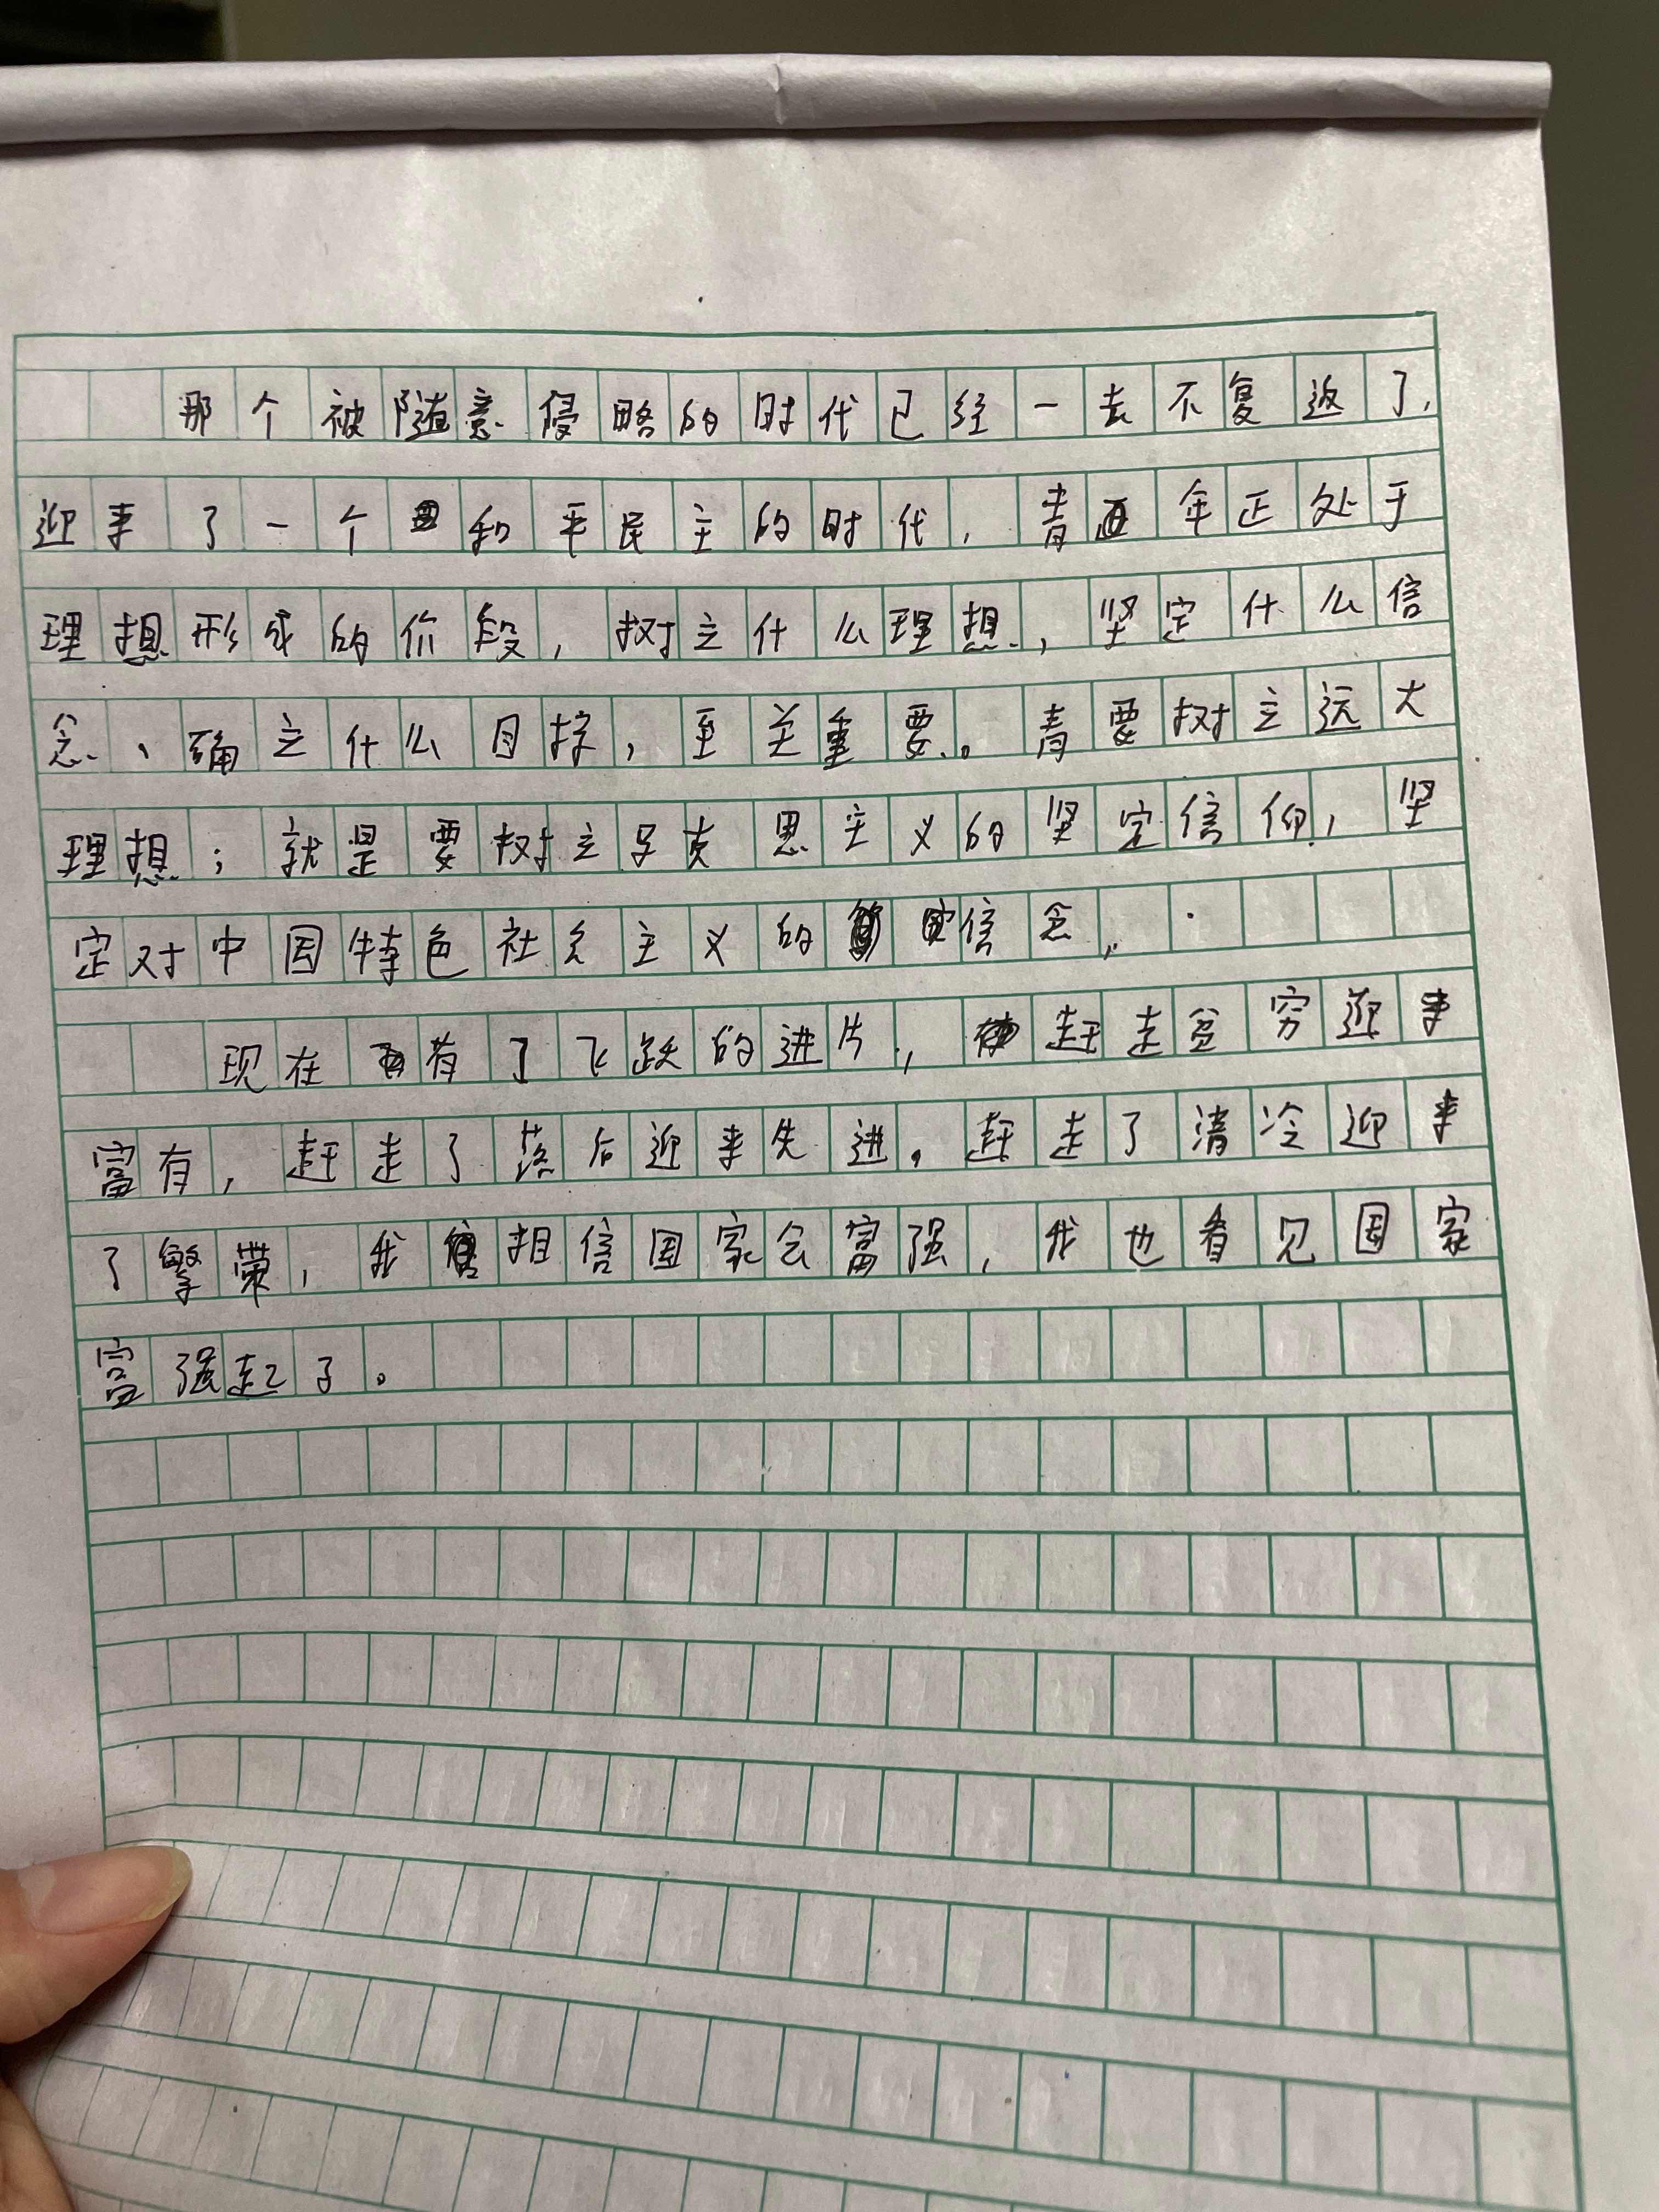 那个被随意侵略的时代已经一去不复返了,
迎来了一个和平民主的时代,青年正处于
理想形成的价段,树立什么理想,坚定什么信
念、确立什么目标,至关重要。青要树立远大
理想;就是要树立马克思主义的坚定信仰,坚
定对中国特色社会主义的信念,.
现在有了飞跃的进片,赶走贫穷迎来
富有,赶走了落后迎来先进。赶走了清冷迎来
了繁荣,我相信国家会富强,我也看见国家
富强起了。